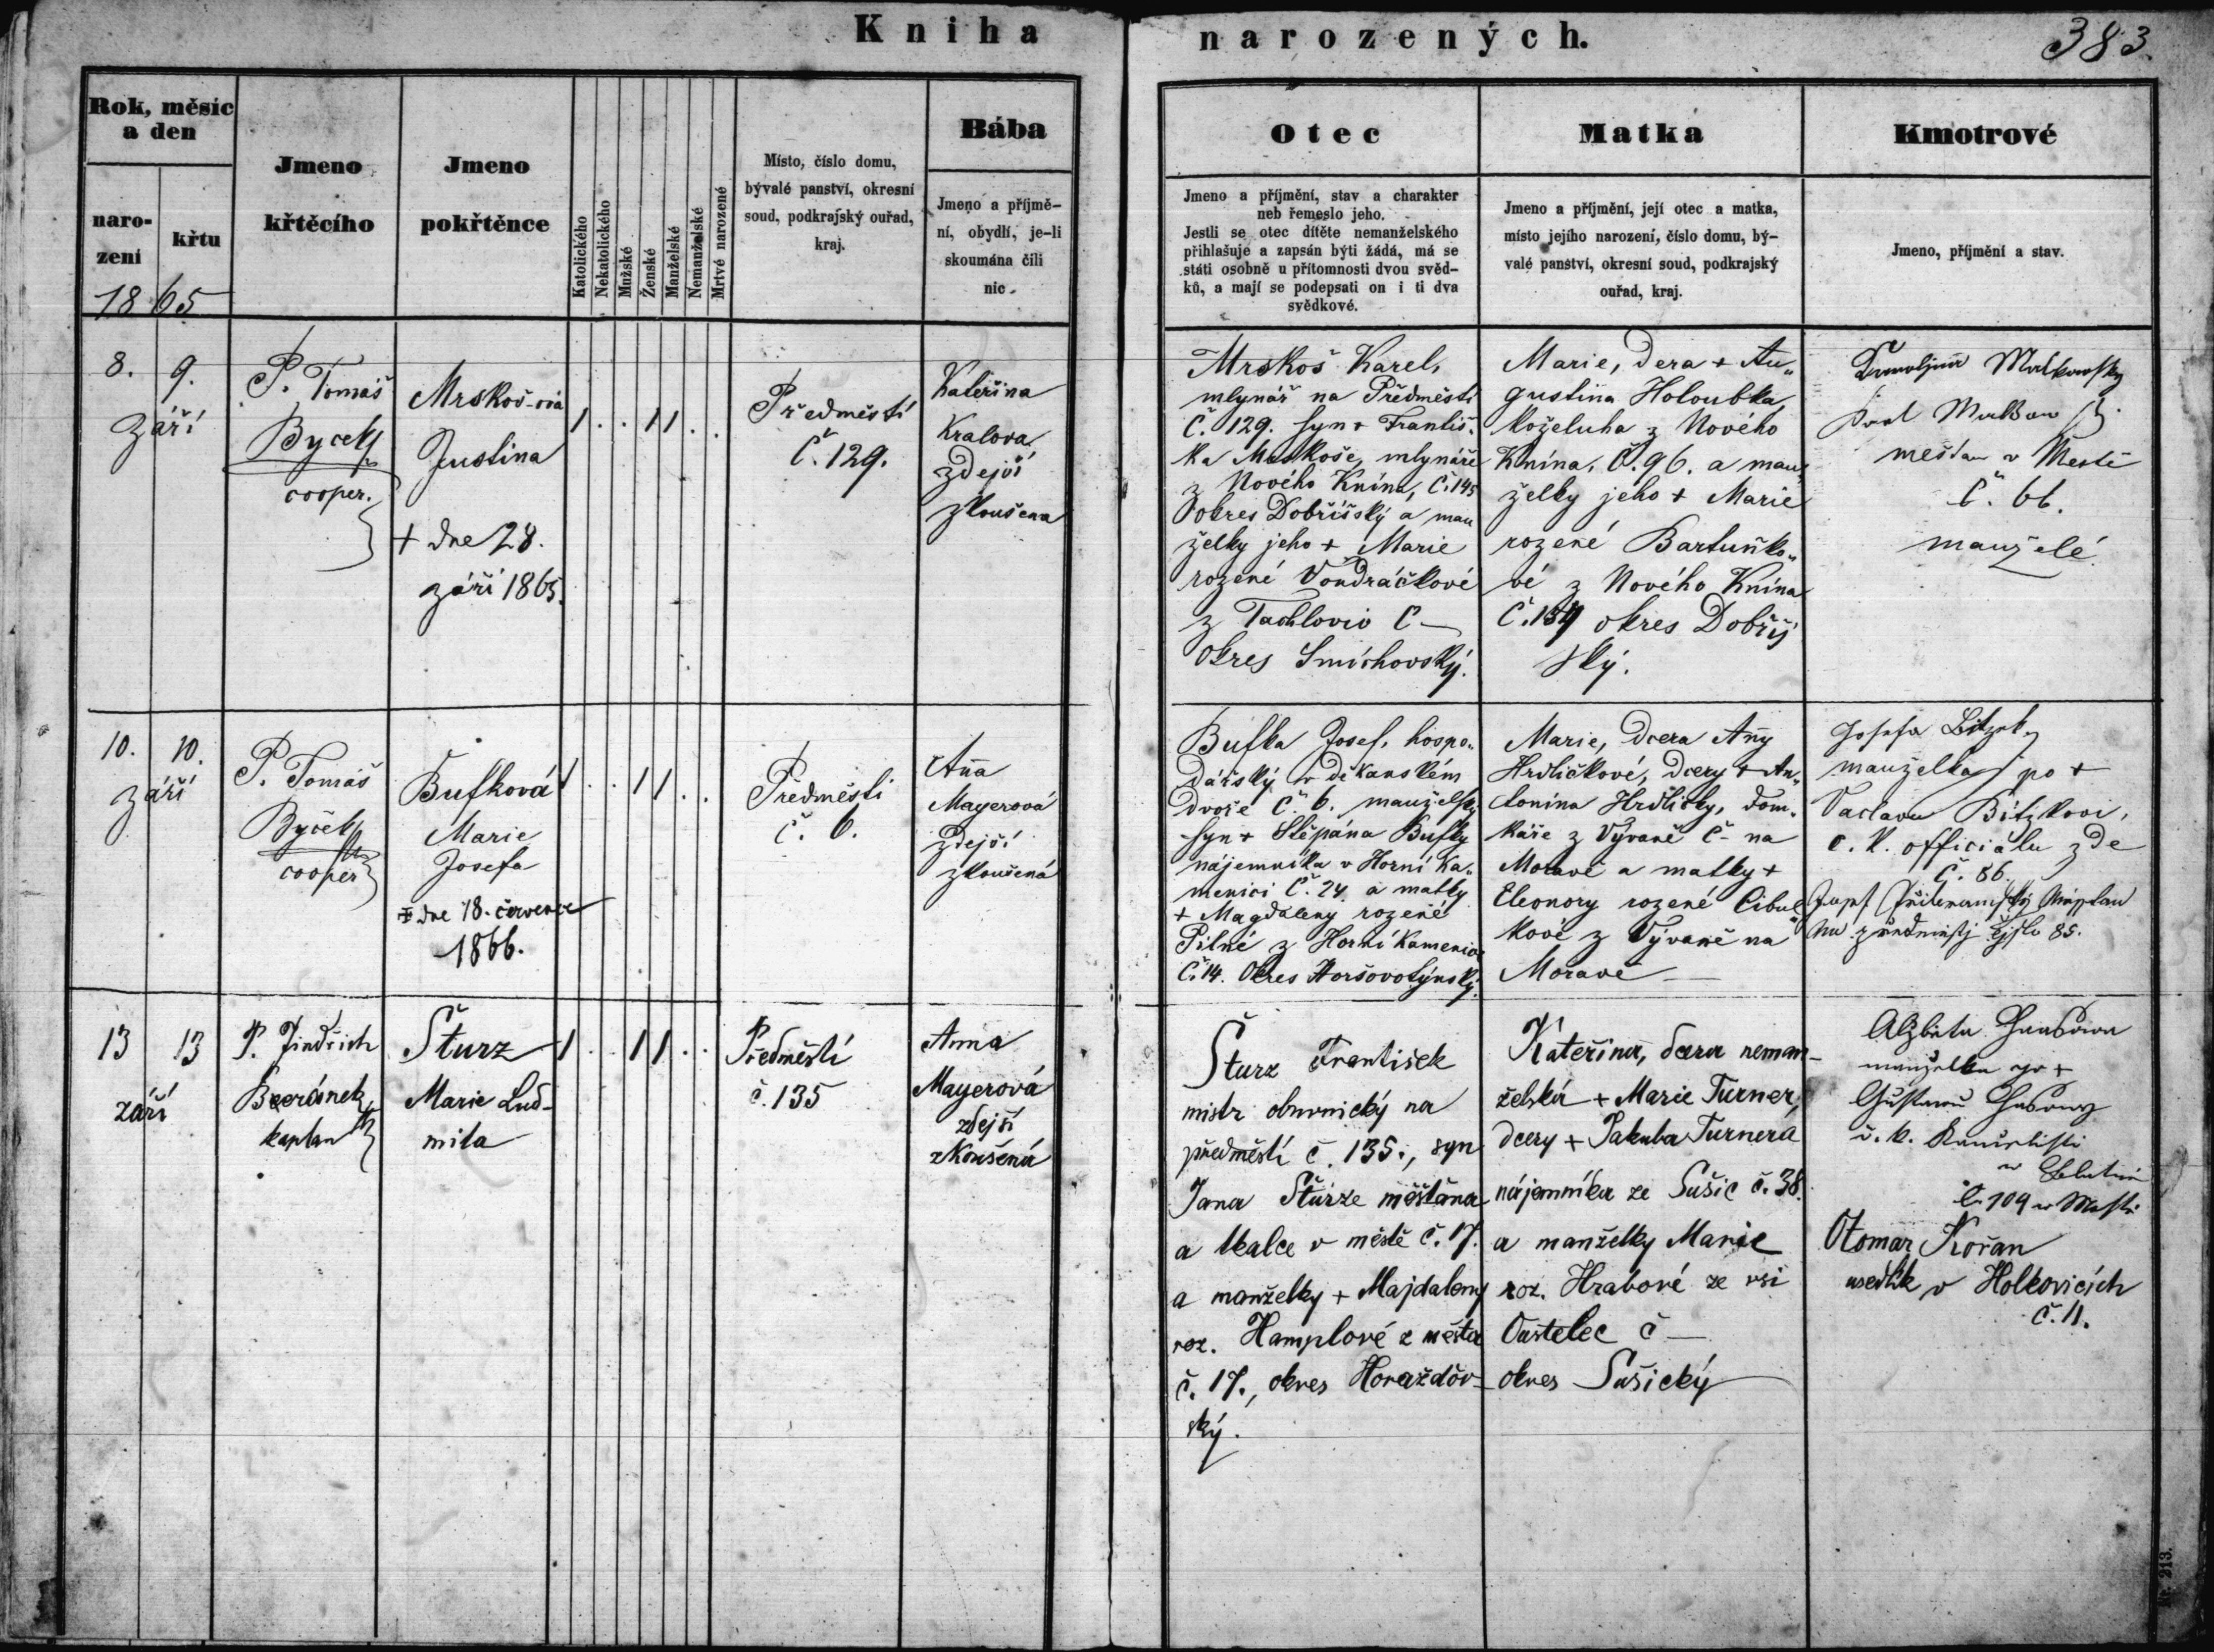 Kniha narozených.
383.
Rok, měsíc
a den
naro-
zení
křtu
1865
Jmeno
křtěcího
Jmeno
pokřtěnce
Katolického
Nekatolického
Mužské
Ženské
Manželské
Nemanželské
Mrtvé narozené
Místo, číslo domu,
bývalé panství, okresní
soud, podkrajský ouřad,
kraj.
Bába
Jmeno a příjmě-
ní, obydlí, je-li
skoumána čili
nic.
Otec
Jmeno a příjmění, stav a charakter
neb řemeslo jeho.
Jestli se otec dítěte nemanželského
přihlašuje a zapsán býti žádá, má se
státi osobně u přítomnosti dvou svěd-
ků, a mají se podepsati on i ti dva
svědkové.
Matka
Jmeno a příjmění, její otec a matka,
místo jejího narození, číslo domu, bý-
valé panství, okresní soud, podkrajský
ouřad, kraj.
Kmotrové
Jmeno, příjmění a stav.
8. 9.
září
P. Tomáš
Byček
cooper.
Mrskoš-ová
Justina
+ dne 28.
září 1865.
1 . . 1 1 . .
Předměstí
Č. 129.
Kateřina
Kralova
zdejší
zkoušena
Mrskoš Karel,
mlynář na Předměstí
Č. 129. syn + Františ-
ka Mrskoše, mlynáře
z Nového Knína, Č. 145
okres Dobříšský a man
želky jeho + Marie
rozené Vondráčkové
z Tachlovic C —
Okres Smíchovský.
Marie, dcera + Au„
gustina Holoubka,
koželuha z Nového
Knína, Č. 96. a man„
želky jeho + Marie
rozené Bartuňko„
vé z Nového Knína
Č. 134 okres Dobříš
ský.
měšťan v Městě
Č. 66.
manželé.
10. 10.
září
P. Tomáš
Byček
cooper
Bufková
Marie
Josefa
+ dne 18. července
1866.
1 . . 1 1 . .
Předměstí
č. 6.
Aña
Mayerová
zdejší
zkoušená
Bufka Josef, hospo„
dářský v děkanském
dvoře č. 6. manželský
syn + Štěpána Bufky
nájemníka v Horní Ka„
menici Č. 24. a matky
+ Magdaleny rozené
Pilné z Horní Kamenice
Č. 14. Okres Horšovotýnský.
Marie, dcera Añy
Hrdličkové, dcery + An„
tonína Hrdličky, dom„
káře z Vývaně č — na
Moravě a matky +
Eleonory rozené Cibul
kové z Vývaně na
Moravě —
Josefa
manželka po +
Vaclavu
c. k. officiálu zde
Č. 86.
85.
13 13
září
P. Jindřich
Beránek,
kaplan
Šturz
Marie Lud-
mila
1 . . 1 1 . .
Předměstí
č. 135
Anna
Mayerová
zdejší
zkoušená
Šturz František
mistr obuvnický na
předměstí č. 135., syn
Jana Šturze měšťana
a tkalce v městě č. 17.
a manželky + Majdaleny
roz. Hamplové z města
č. 17., okres Horažďov-
ský.
Kateřina, dcera neman-
želská + Marie Turner,
dcery + Jakuba Turnera
nájemníka ze Sušic č. 38.
a manželky Marie
roz. Hrabové ze vsi
Častelec č —
okres Sušický
Alžběta
manželka po +
č. 109 v Městě
Otomar Kořan
usedlík v Holkovicích
č. 11.
Nr. 213.